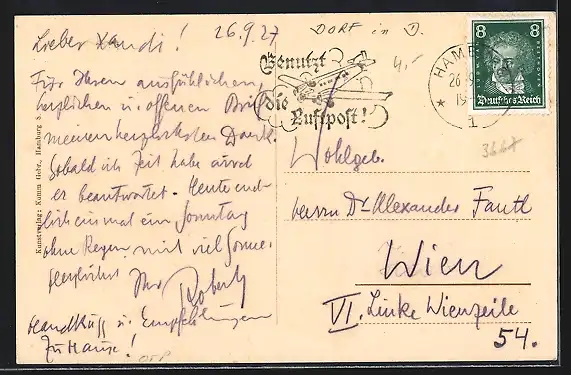 26.9.27
Lieber Xandi!
Für Ihren ausführlichen,
herzlichen u. offenen Brief
meinen herzlichsten Dank.
Sobald ich Zeit habe wird
er beantwortet. Heute end-
lich einmal ein Sonntag
ohne Regen, mit viel Sonne.
Herzlichst Ihr Robert
Handkuss u. Empfehlungen
zu Hause!
Kunstverlag: Kumm Gebr., Hamburg 8.
DORF in D.
4.-
Benutzt
die
Luftpost!
HAMB
26.9
19
1
8 8
Deutsches Reich
3668
Wohlgeb.
Herrn Dr Alexander Fantl
Wien
VI. Linke Wienzeile
54.